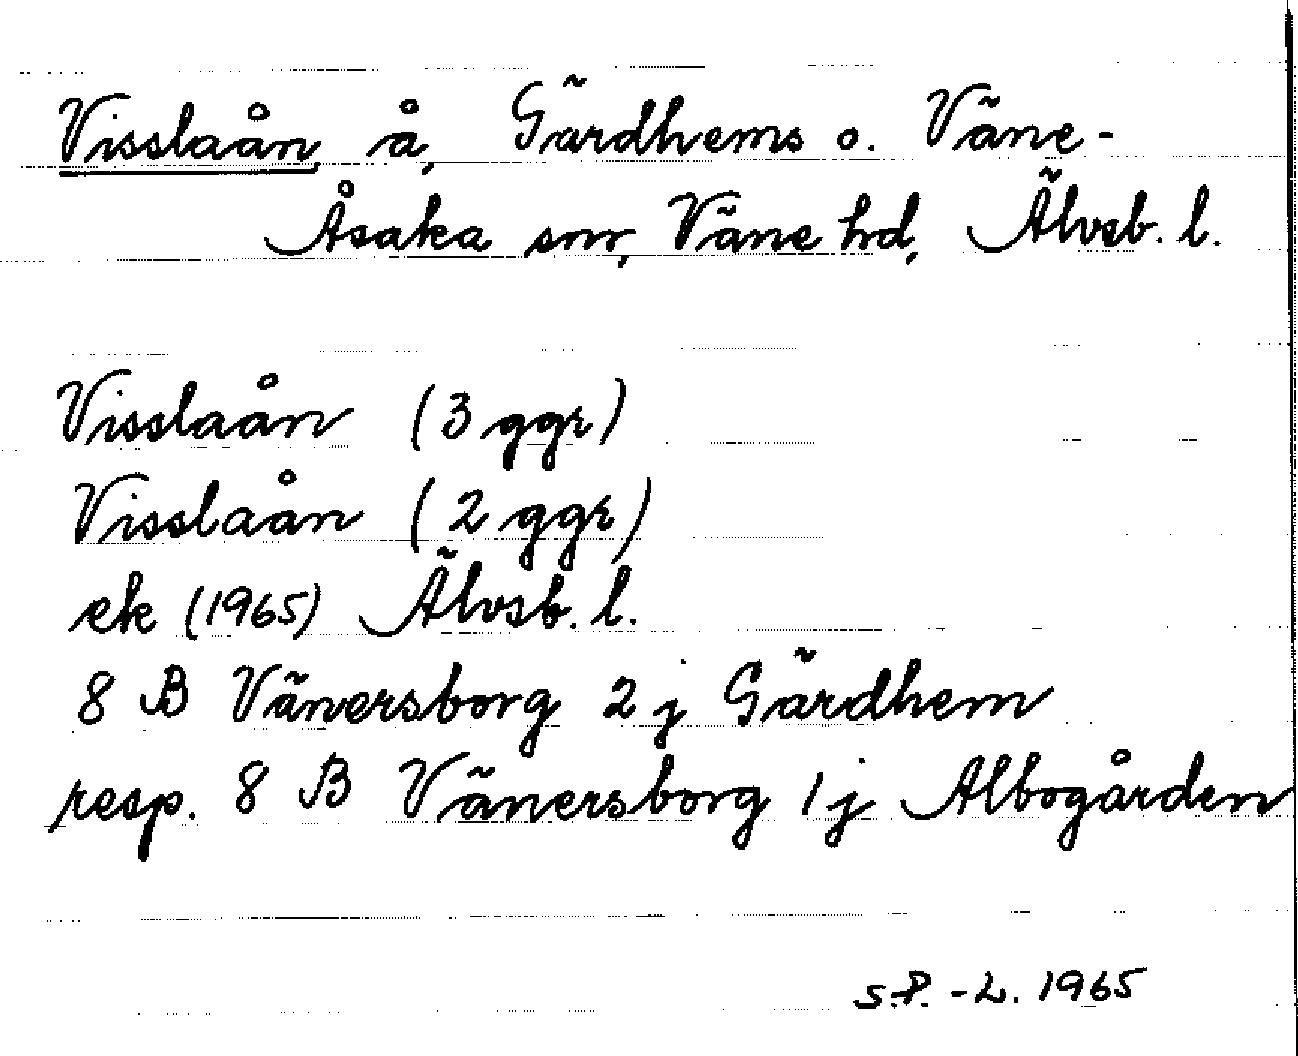 Visslaån å, Gärdhems o. Väne-
Åsaka snr, Väne hd, Älvsb. l.
Visslaån (3 ggr)
Visslaån (2 ggr)
ek (1965) Älvsb. l.
8 B Vänersborg 2 j Gärdhem
resp. 8 B Vänersborg 1 j Albogården
S.P. - L. 1965